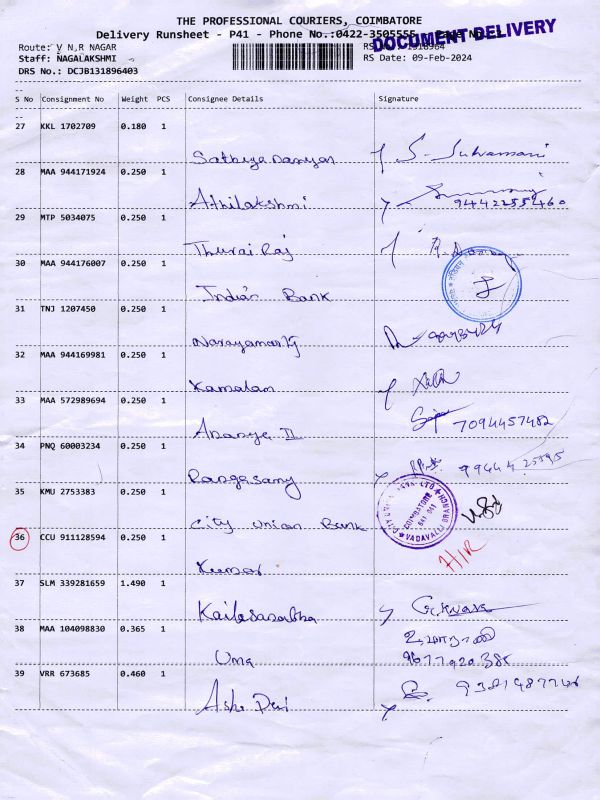 THE PROFESSIONAL COURIERS, COIMBATORE
Delivery Runsheet - P41 - Phone No.:0422-3505555, Page No.:
DOCUMENT DELIVERY
Route: V N,R NAGAR
Staff: NAGALAKSHMI
RS Date: 09-Feb-2024
DRS No.: DCJB131896403
S No Consignment No Weight PCS Consignee Details Signature
27 KKL 1702709 0.180 1
28 MAA 944171924 0.250 1
Athilakshmi 9442255460
29 MTP 5034075 0.250 1
Thurai Raj
30 MAA 944176007 0.250 1
Indian Bank
31 TNJ 1207450 0.250 1
32 MAA 944169981 0.250 1
Kamalam
33 MAA 572989694 0.250 1
Ananya II 7094457482
34 PNQ 60003234 0.250 1
Rangasamy 99444 25595
35 KMU 2753383 0.250 1
City Union Bank
COIMBATORE
641 041
VADAVALLI BRANCH
36 CCU 911128594 0.250 1
Kumar
37 SLM 339281659 1.490 1
38 MAA 104098830 0.365 1
Uma
39 VRR 673685 0.460 1
Asha Devi